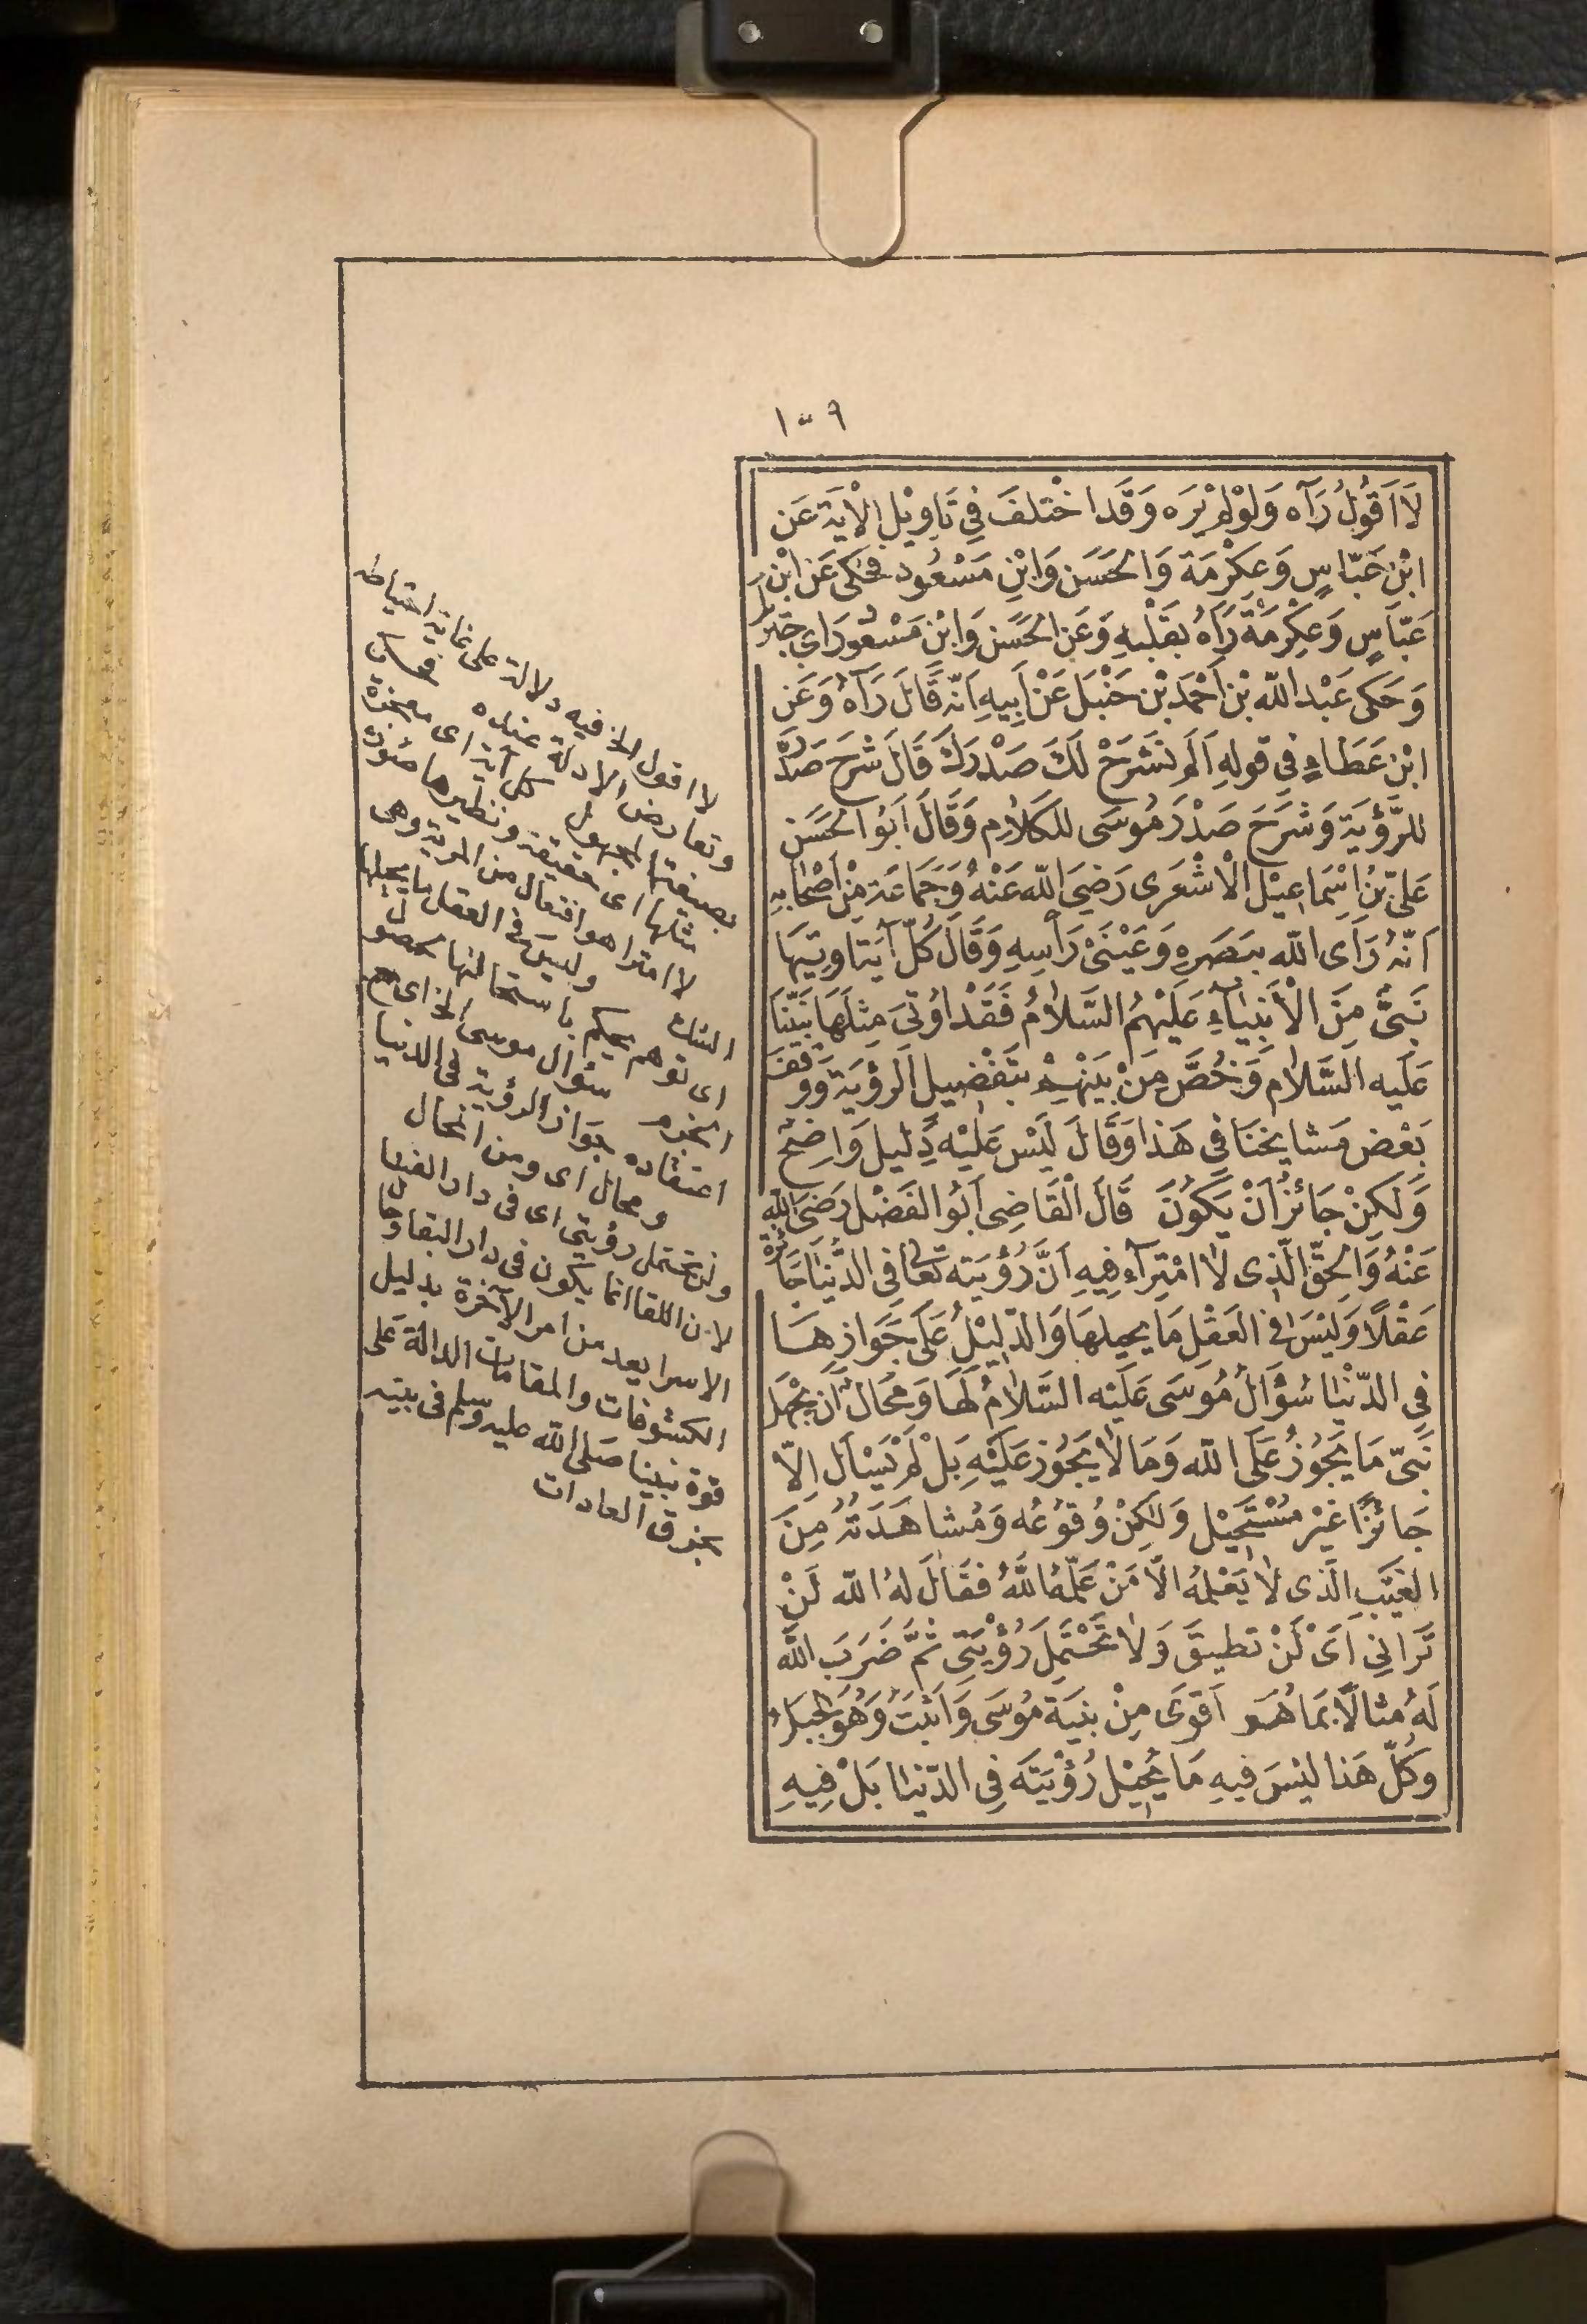 ١٠٩
لَا اَقُولُ رَآه وَلَوْ لَمْ يَرَه وَقَد اخْتلفَ فِي تَاوِيْلِ الْاٰيَة عَن
ابْن عَبّاسٍ وَعِكْرِمَة وَالحَسَن وَابْنِ مَسْعُود فحَكى عَن ابْن
عَبّاسٍ وَعِكْرِمَةَ رَآهُ بقَلْبهِ وَعَن الحَسَن وَابْن مَسْعُود رَاى جبَرئيل
وَحَكى عَبْد اللّه بْن اَحْمَد بْن حَنْبَل عَنْ اَبِيهِ اَنّه قَالَ رَآهُ وَعَن
ابْن عَطَاءٍ فِي قولهِ اَلَم نشَرَحْ لَكَ صَدْرَكَ قَالَ شَرَحَ صَدْرَهُ
للرّؤيَة وَشَرَحَ صَدْرَ مُوسَى للكَلَام وَقَالَ اَبُو الحَسَن
عَليّ بْنُ اِسْمَاعِيْل الْاَشْعَرى رَضِيَ اللّه عَنْهُ وَجَمَاعَة مِنْ اَصْحَابهِ
اَنّهُ رَاَى اللّه ببَصَرِهِ وَعَيْنَىْ رَاْسِهِ وَقَالَ كُلّ آيَة اوتِيَهَا
نَبيٌّ مِنَ الْاَنبِيَاءِ عَلَيْهِمُ السَّلَامُ فَقَدْ اُوتِيَ مِثلَهَا نَبيّنَا
عَلَيه السَّلَام وَخُصَّ مِنْ بَيْنِهِمْ بتَفْضِيل الرؤيَة وَوقفَ
بَعْض مَشايخنَا فى هَذا وَقَالَ لَيْسَ عَلَيْه دَلِيل وَاضِحٌ
وَلَكِنْ جَائزٌ اَنْ يَكُونَ قَالَ الْقَاضِى اَبُو الفَضْل رَضىَ اللّه
عَنْهُ وَالحقّ الّذِى لَا امْتِرَآء فِيهِ اَنَّ رُؤْيَته تعَالى فى الدُّنيَا جَائزَة
عَقْلًا وَليْسَ فى العَقْل مَا يحيلهَا وَالدّلِيْلُ عَلَى جَوَازهَا
فِي الدّنْيَا سُؤَالُ مُوسَى عَلَيْه السَّلَامُ لَهَا وَمحَال اَن يجْهَل
نَبيّ مَا يَجُوزُ عَلَى اللّه وَمَا لَا يَجُوز عَلَيْهِ بَلْ لَمْ يَسْأل اِلّا
جَائزًا غَيْر مُسْتَحِيْل وَلَكِنْ وُقُوعُه وَمُشاهَدَتُهُ مِنَ
الغَيْبِ الّذى لَا يَعْلمُهُ الّا مَنْ عَلّمَهُ اللَّهُ فقَالَ لهُ اللّه لَنْ
تَرَانِي اَىْ لَنْ تطيقَ وَلَا تَحْتَمِلَ رُؤْيَتِي ثمَّ ضَرَبَ اللّه
لَهُ مثالًا بمَا هُوَ اَقوَى مِنْ بنيَة مُوسَى وَاثبَتُ وَهُوَ الجبَلُ
وَكُلّ هَذا ليْسَ فِيهِ مَا يُحِيْل رُؤْيَتَه فِى الدّنيَا بَلْ فِيهِ
لا اقول الخ فيه دلالة على غاية احتياطه
وتعارض الادلة عنده
بصيغة المجهول كل آية اى معجزة
مثلها اى حقيقة ونظيرها
لا امترا هو افتعال من المرية وهى
الشك وليس فى العقل ما يحيلها
اى توهم يحكم باستحالتها
سؤال موسى الخ اى
اعتقاده جواز الرؤية فى الدنيا
ومحال اى ومن المحال
ولن تحتمل رؤيتى اى فى دار الفنا
لان اللقا انما يكون فى دار البقا
الاسرا يعد من امر الآخرة بدليل
الكشوفات والمقامات الدالة على
قوة نبينا صلى اللّه عليه وسلم فى بنيته
بخرق العادات